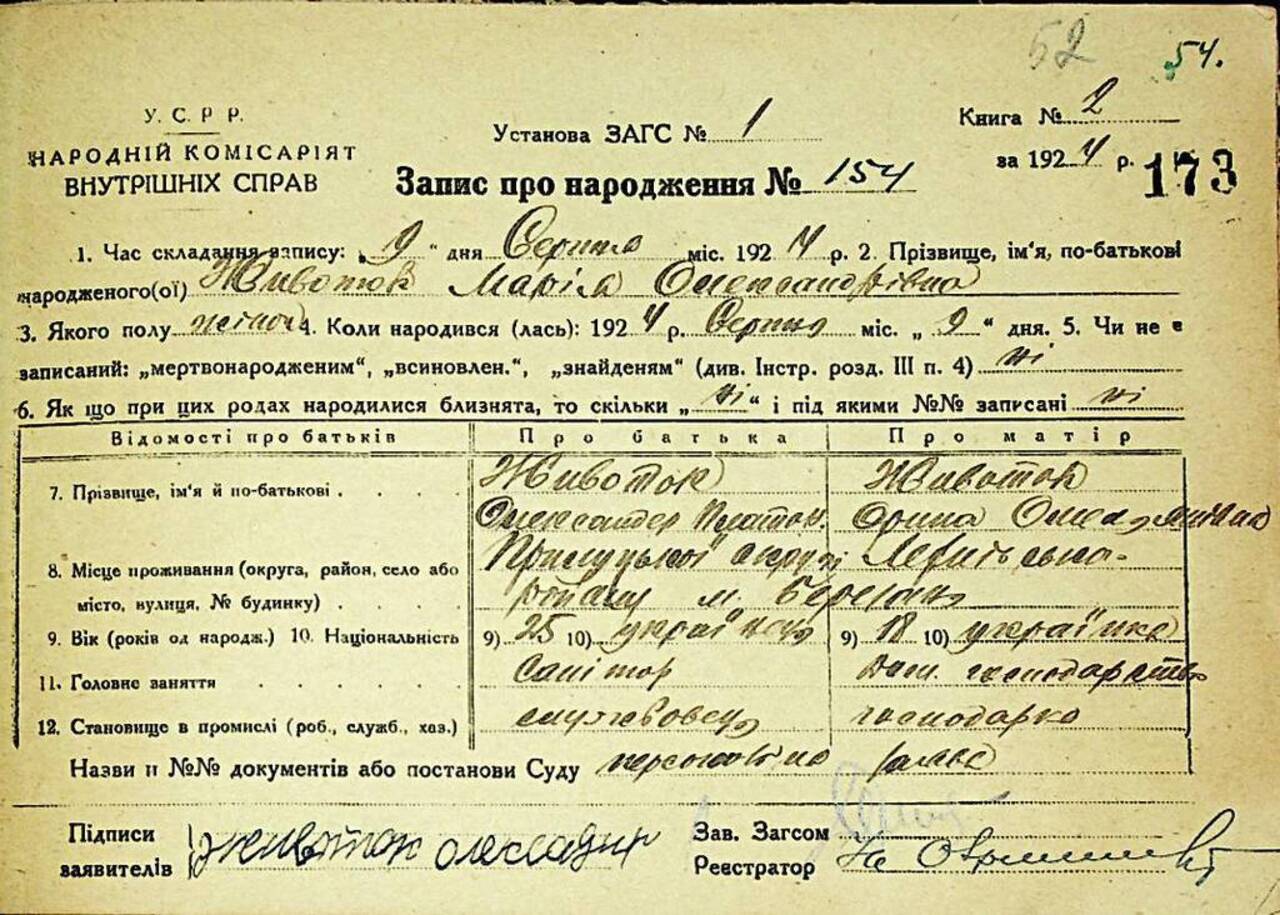 52 54.
У. С. Р Р.
НАРОДНІЙ КОМІСАРІЯТ
ВНУТРІШНІХ СПРАВ
Установа ЗАГС № 1
Книга № 2
за 1924 р. 173
Запис про народження № 154
1. Час складання запису: „9“ дня Серпня міс. 1924 р. 2. Прізвище, ім'я, по-батькові
народженого(ої) Животок Марія Олександрівна
3. Якого полу жіноч 4. Коли народився (лась): 1924 р. Серпня міс. „9“ дня. 5. Чи не є
записаний: „мертвонародженим“, „всиновлен.“, „знайденям“ (див. Інстр. розд. III п. 4) ні
6. Як що при цих родах народилися близнята, то скільки „ні“ і під якими №№ записані ні
Відомості про батьків Про батька Про матір
7. Прізвище, ім'я й по-батькові . . . . Животок Животок
Олександер Платон.
8. Місце проживання (округа, район, село або Прилуцької округи
місто, вулиця, № будинку) . . . . м. Березань
9. Вік (років од народж.) 10. Національність 9) 25 10) українець 9) 18 10) українка
11. Головне заняття . . . . . санітор Дом. господарство
12. Становище в промислі (роб., служб., хаз.) службовець господарка
Назви и №№ документів або постанови Суду
Підписи
заявителів Животок
Зав. Загсом
Реєстратор